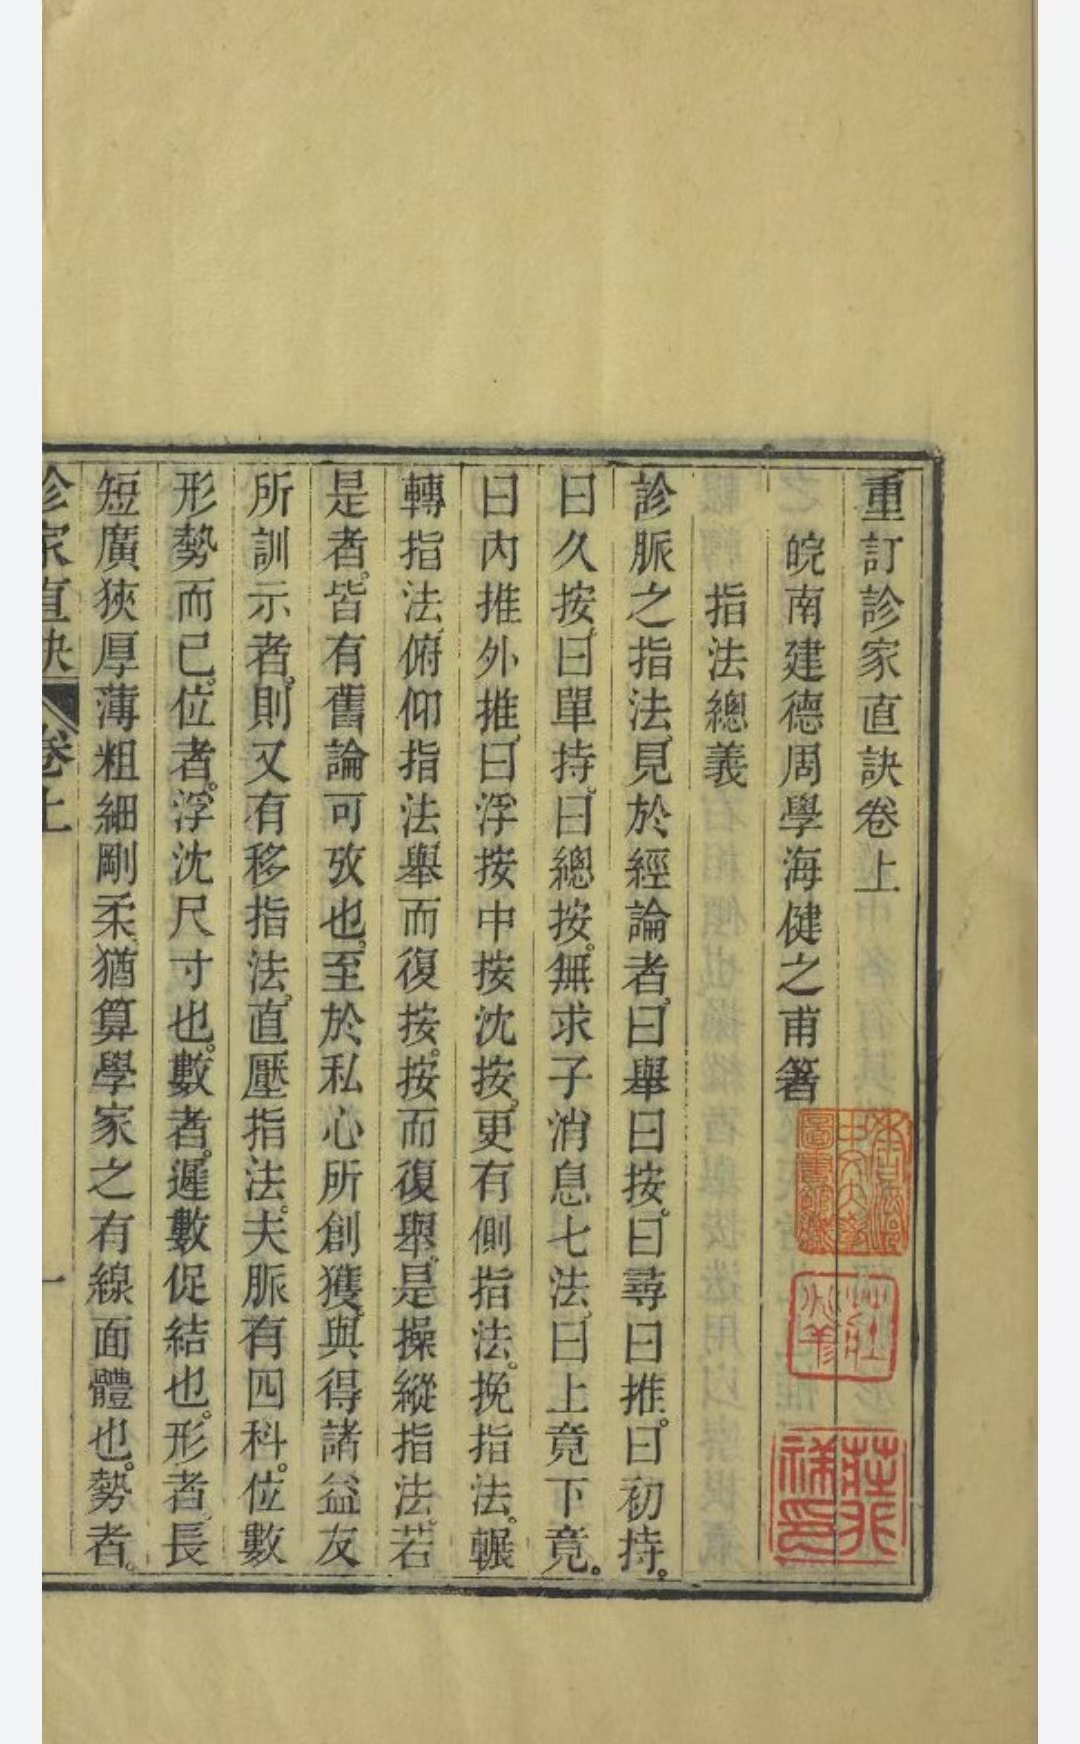 重訂診家直訣卷上
皖南建德周學海健之甫箸
指法總義
診脈之指法見於經論者曰舉曰按。曰尋曰推。曰初持。
曰久按。曰單持。曰總按。無求子消息七法。曰上竟下竟。
曰內推外推。曰浮按中按沈按。更有側指法。挽指法。輾
轉指法。俯仰指法舉而復按。按而復舉。是操縱指法。若
是者。皆有舊論可攷也。至於私心所創獲。與得諸益友
所訓示者。則又有移指法。直壓指法。夫脈有四科。位數
形勢而已。位者。浮沈尺寸也。數者。遲數促結也。形者。長
短廣狹厚薄粗細剛柔。猶算學家之有線面體也。勢者。
診家直訣 卷上 一